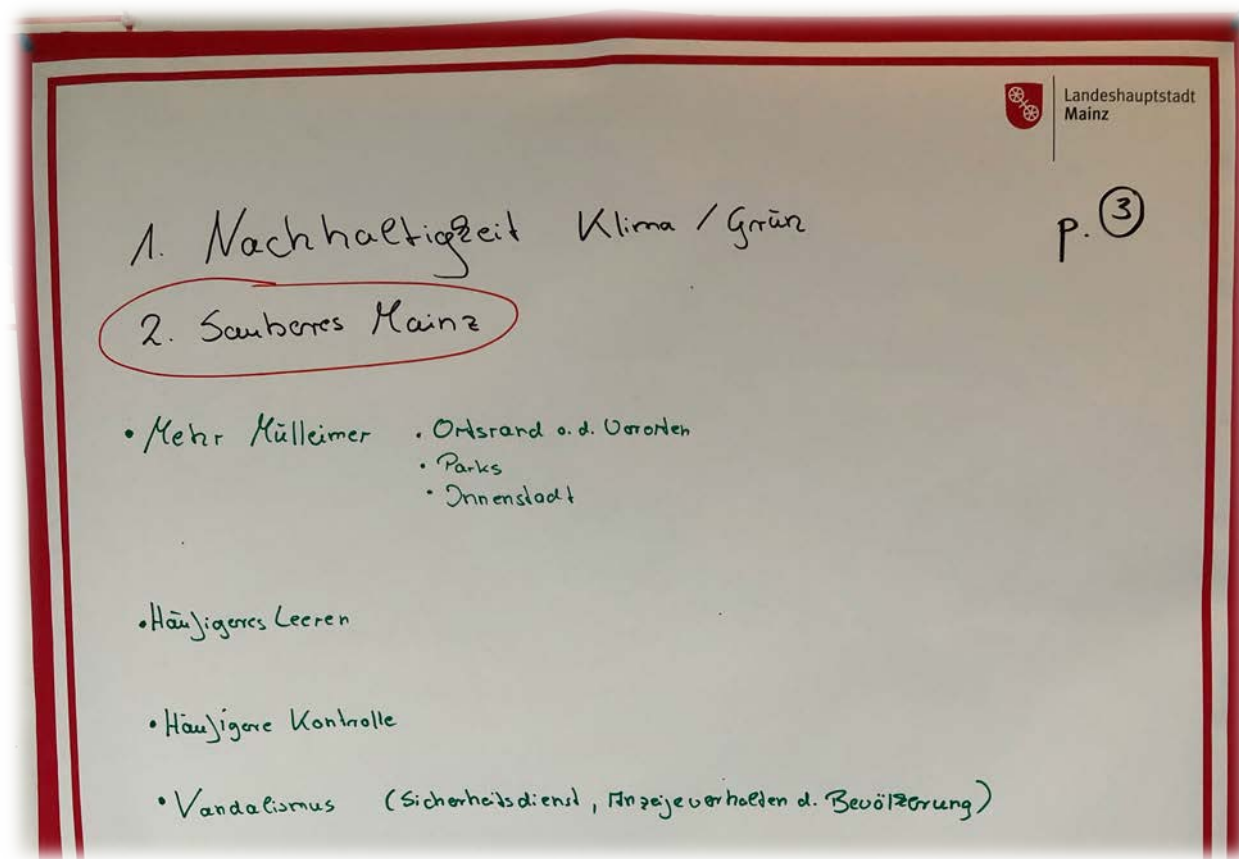 Landeshauptstadt
Mainz
1. Nachhaltigkeit Klima / Grün p. 3
2. Sauberes Mainz
• Mehr Mülleimer • Ortsrand o. d. Vororten
• Parks
• Innenstadt
• Häufigeres Leeren
• Häufigere Kontrolle
• Vandalismus (Sicherheitsdienst, Anzeigeverhalten d. Bevölkerung)